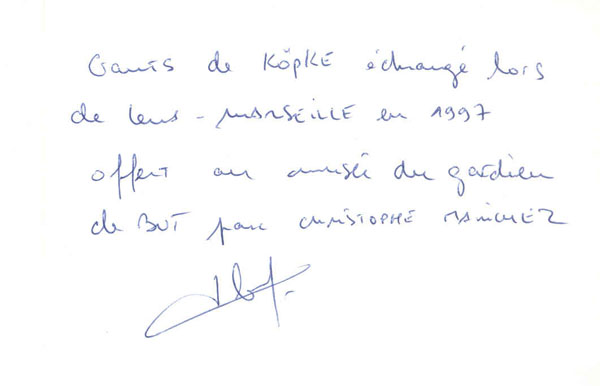 Gants de KÖPKE échangé lors
de Lens - MARSEILLE en 1997
offert au musée du gardien
de BUT par CHRISTOPHE